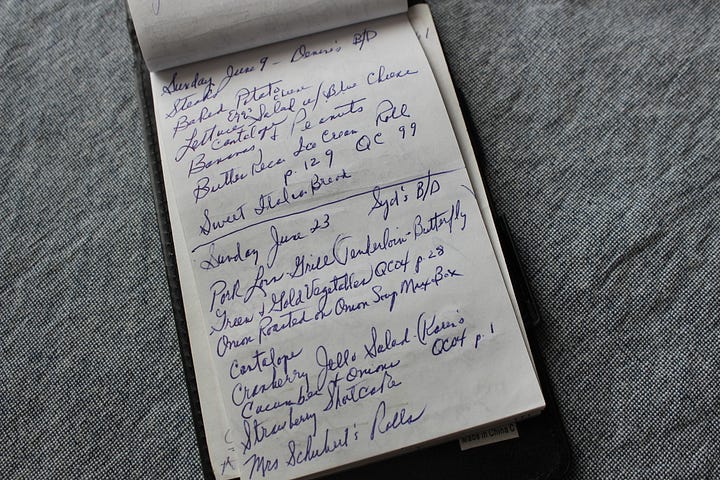 Sunday June 9 - Denise's B/D
Steaks
Baked Potato
Eggs
Lettuce Salad w/ Blue Cheese
Cantalope
Bananas & Peanuts
Butter Pecan Ice Cream Roll
p. 129 QC 99
Sweet Italian Bread
Sunday June 23 Syd's B/D
Pork Loin - Grill (Tenderloin - Butterfly
Green & Gold Vegetables) QC04 p. 28
Onion Roasted on Onion Soup Mix Box
Cantalope
Cranberry Jello Salad - (Karen's
Cucumber & Onions QC04 p. 1
Strawberry Shortcake
Mrs Schubert's Rolls
Made in China